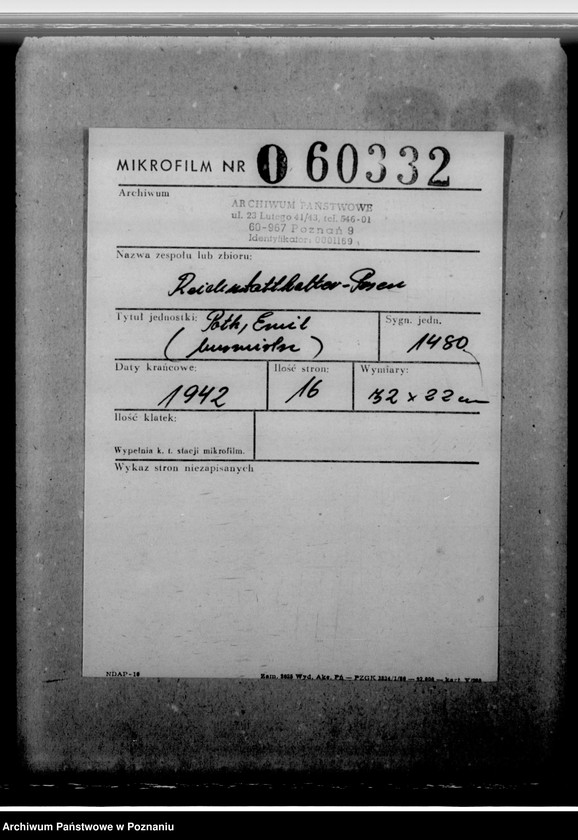 MIKROFILM NR 060332
Archiwum
ARCHIWUM PAŃSTWOWE
ul. 23 Lutego 41/43, tel. 546-01
60-967 Poznań 9
Identyfikator: 0001169
Nazwa zespołu lub zbioru:
Reichsstatthalter-Posen
Tytuł jednostki: Poth, Emil
(burmistrz)
Sygn. jedn.
1480
Daty krańcowe:
1942
Ilość stron:
16
Wymiary:
32 x 22 cm
Ilość klatek:
Wypełnia k. t. stacji mikrofilm.
Wykaz stron niezapisanych
NDAP-16
Wyd. Akc. PA — PZGK
Archiwum Państwowe w Poznaniu